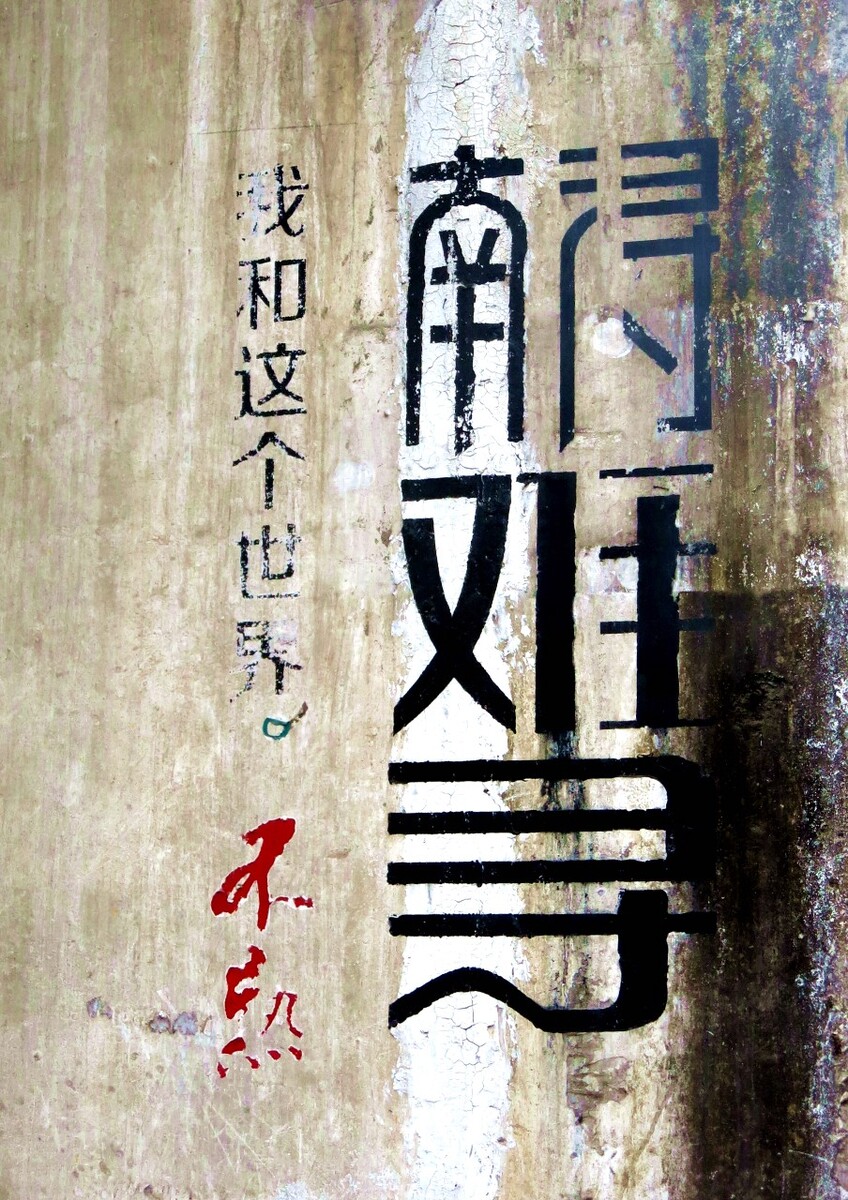 南得
难
寻
我和这个世界。
不熟